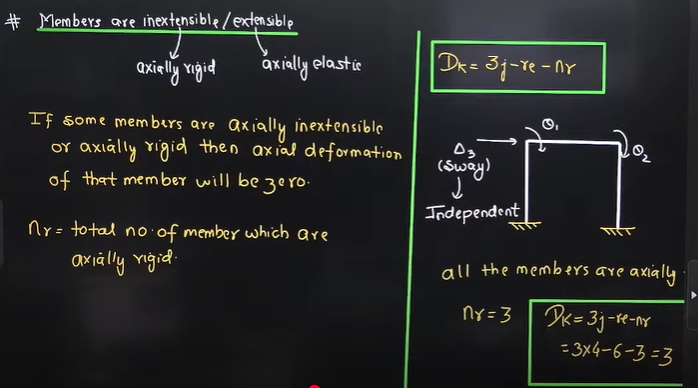 # Members are inextensible/extensible
axially rigid
axially elastic
If some members are axially inextensible
or axially rigid then axial deformation
of that member will be zero.
nr = total no. of member which are
axially rigid.
Dk = 3j - re - nr
θ1
θ2
Δ3
(Sway)
Independent
all the members are axially
nr = 3
Dk = 3j - re - nr
= 3x4 - 6 - 3 = 3